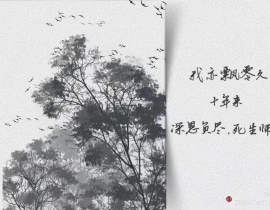 我亦飘零久
十年来
深恩负尽，死生师